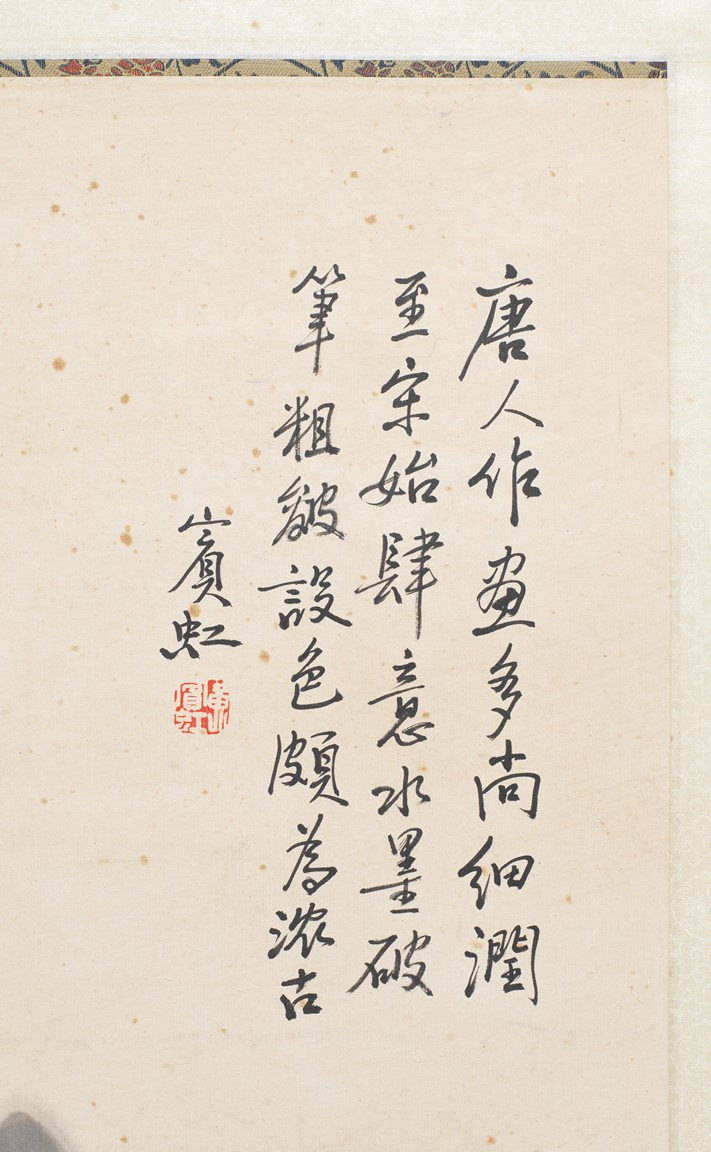 唐人作画多尚细潤
至宋始肆意水墨破
筆粗皴設色頗為濃古
賓虹
黄賓虹